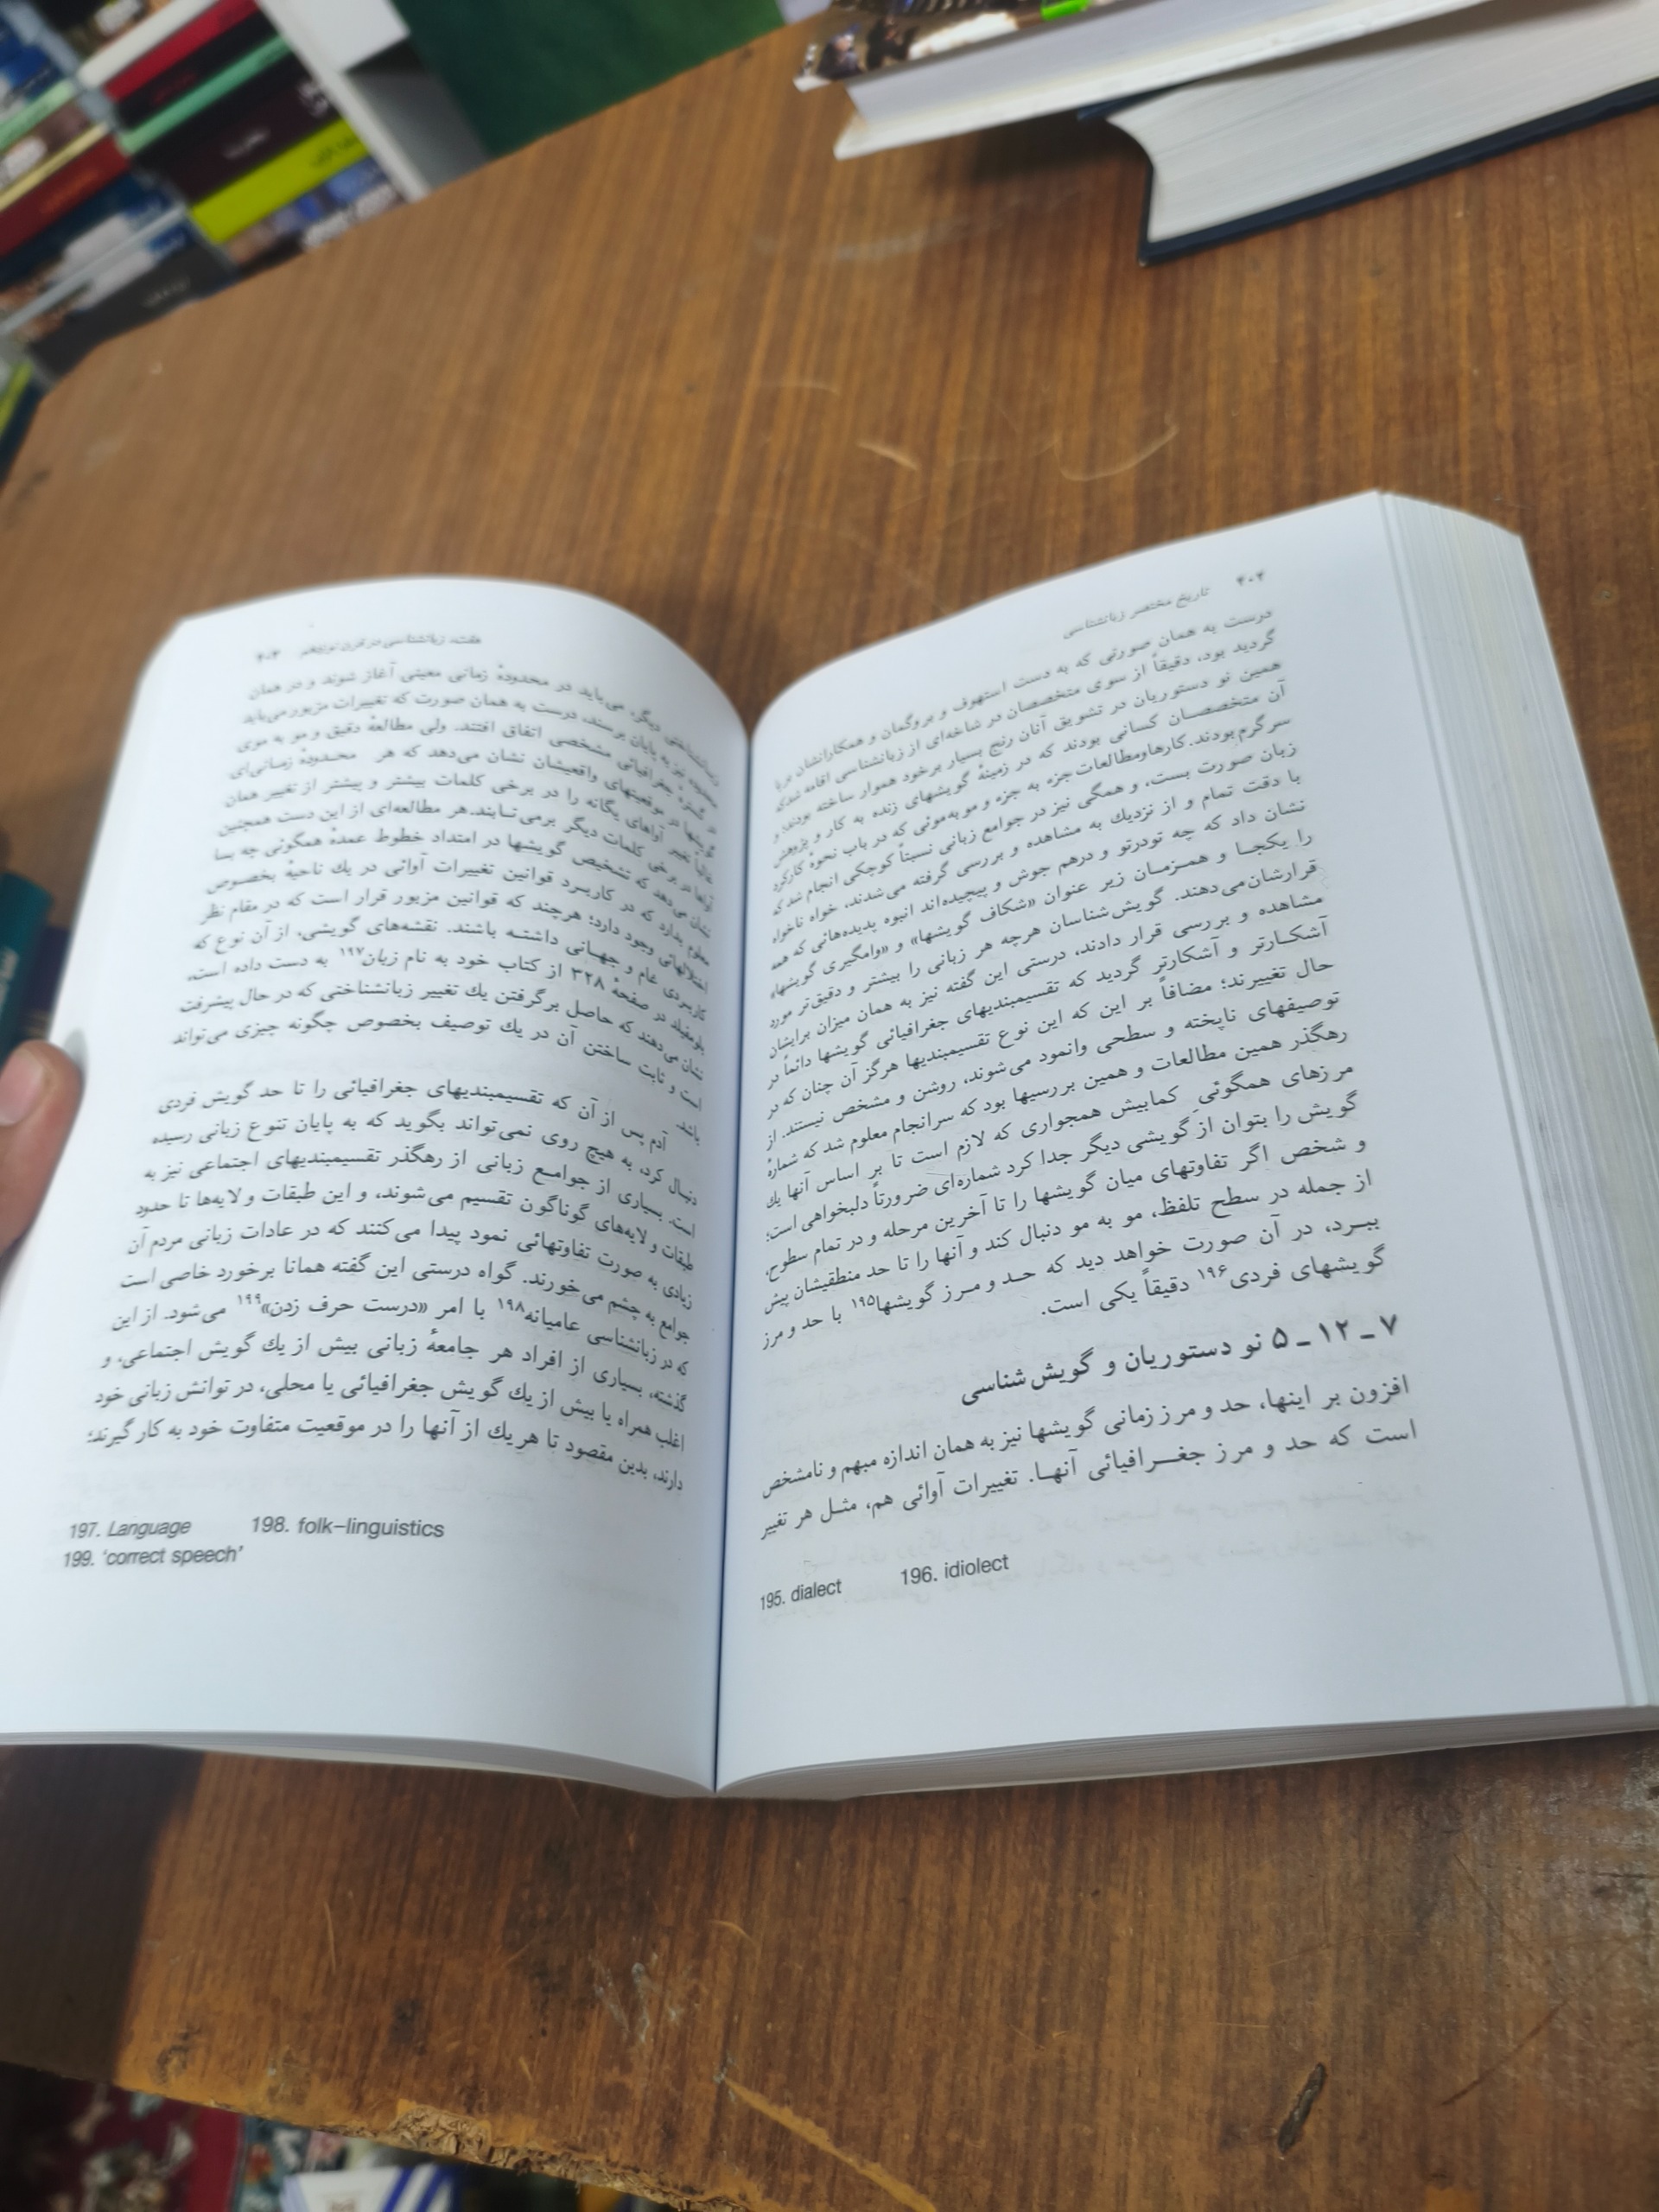 ۴۰۲ تاریخ مختصر زبانشناسی
درست به همان صورتی که به دست استهوف و بروگمان و همکارانشان برپا
گردید بود، دقیقاً از سوی متخصصان در شاخه‌ای از زبانشناسی اقامه شد که
همین نو دستوریان در تشویق آنان رنج بسیار برخود هموار ساخته بودند؛ و
آن متخصصان کسانی بودند که در زمینهٔ گویشهای زنده به کار و پژوهش
سرگرم بودند. کارها و مطالعات جزء به جزء و مو به موئی که در باب نحوهٔ کارکرد
زبان صورت بست، و همگی نیز در جوامع زبانی نسبتاً کوچکی انجام شد که
با دقت تمام و از نزدیك به مشاهده و بررسی گرفته می‌شدند، خواه ناخواه
نشان داد که چه تودرتو و درهم جوش و پیچیده‌اند انبوه پدیده‌هائی که همه
را یکجا و همزمان زیر عنوان «شکاف گویشها» و «وامگیری گویشها»
قرارشان می‌دهند. گویش‌شناسان هرچه هر زبانی را بیشتر و دقیق‌تر مورد
مشاهده و بررسی قرار دادند، درستی این گفته نیز به همان میزان برایشان
آشکارتر و آشکارتر گردید که تقسیمبندیهای جغرافیائی گویشها دائماً در
حال تغییرند؛ مضافاً بر این که این نوع تقسیمبندیها هرگز آن چنان که در
توصیفهای ناپخته و سطحی وانمود می‌شوند، روشن و مشخص نیستند. از
رهگذر همین مطالعات و همین بررسیها بود که سرانجام معلوم شد که شمارهٔ
مرزهای همگوئی کمابیش همجواری که لازم است تا بر اساس آنها یك
گویش را بتوان از گویشی دیگر جدا کرد شماره‌ای ضرورتاً دلبخواهی است؛
و شخص اگر تفاوتهای میان گویشها را تا آخرین مرحله و در تمام سطوح،
از جمله در سطح تلفظ، مو به مو دنبال کند و آنها را تا حد منطقیشان پیش
ببرد، در آن صورت خواهد دید که حد و مرز گویشها۱۹۵ با حد و مرز
گویشهای فردی۱۹۶ دقیقاً یکی است.
۷ ـ ۱۲ ـ ۵ نو دستوریان و گویش‌شناسی
افزون بر اینها، حد و مرز زمانی گویشها نیز به همان اندازه مبهم و نامشخص
است که حد و مرز جغرافیائی آنها. تغییرات آوائی هم، مثل هر تغییر
195. dialect 196. idiolect
هفت. زبانشناسی در قرن نوزدهم ۴۰۳
زبانشناختی دیگر، می‌باید در محدودهٔ زمانی معینی آغاز شوند و در همان
محدوده نیز به پایان برسند، درست به همان صورت که تغییرات مزبور می‌باید
در گسترهٔ جغرافیائی مشخصی اتفاق افتند. ولی مطالعهٔ دقیق و مو به موی
گویشها در موقعیتهای واقعیشان نشان می‌دهد که هر محدودهٔ زمانی‌ای
غالباً تغییر آواهای یگانه را در برخی کلمات بیشتر و پیشتر از تغییر همان
آواها در برخی کلمات دیگر برمی‌تابند. هر مطالعه‌ای از این دست همچنین
نشان می‌دهد که تشخیص گویشها در امتداد خطوط عمدهٔ همگوئی چه بسا
معلوم بدارد که در کاربرد قوانین تغییرات آوائی در یك ناحیهٔ بخصوص
اختلالهائی وجود دارد؛ هرچند که قوانین مزبور قرار است که در مقام نظر
کاربردی عام و جهانی داشته باشند. نقشه‌های گویشی، از آن نوع که
بلومفیلد در صفحهٔ ۳۲۸ از کتاب خود به نام زبان۱۹۷ به دست داده است،
نشان می‌دهند که حاصل برگرفتن یك تغییر زبانشناختی که در حال پیشرفت
است و ثابت ساختن آن در یك توصیف بخصوص چگونه چیزی می‌تواند
باشد.
آدم پس از آن که تقسیمبندیهای جغرافیائی را تا حد گویش فردی
دنبال کرد، به هیچ روی نمی‌تواند بگوید که به پایان تنوع زبانی رسیده
است. بسیاری از جوامع زبانی از رهگذر تقسیمبندیهای اجتماعی نیز به
طبقات و لایه‌های گوناگون تقسیم می‌شوند، و این طبقات و لایه‌ها تا حدود
زیادی به صورت تفاوتهائی نمود پیدا می‌کنند که در عادات زبانی مردم آن
جوامع به چشم می‌خورند. گواه درستی این گفته همانا برخورد خاصی است
که در زبانشناسی عامیانه۱۹۸ با امر «درست حرف زدن»۱۹۹ می‌شود. از این
گذشته، بسیاری از افراد هر جامعهٔ زبانی بیش از یك گویش اجتماعی، و
اغلب همراه با بیش از یك گویش جغرافیائی یا محلی، در توانش زبانی خود
دارند، بدین مقصود تا هریك از آنها را در موقعیت متفاوت خود به کار گیرند؛
197. Language 198. folk–linguistics
199. ‘correct speech’